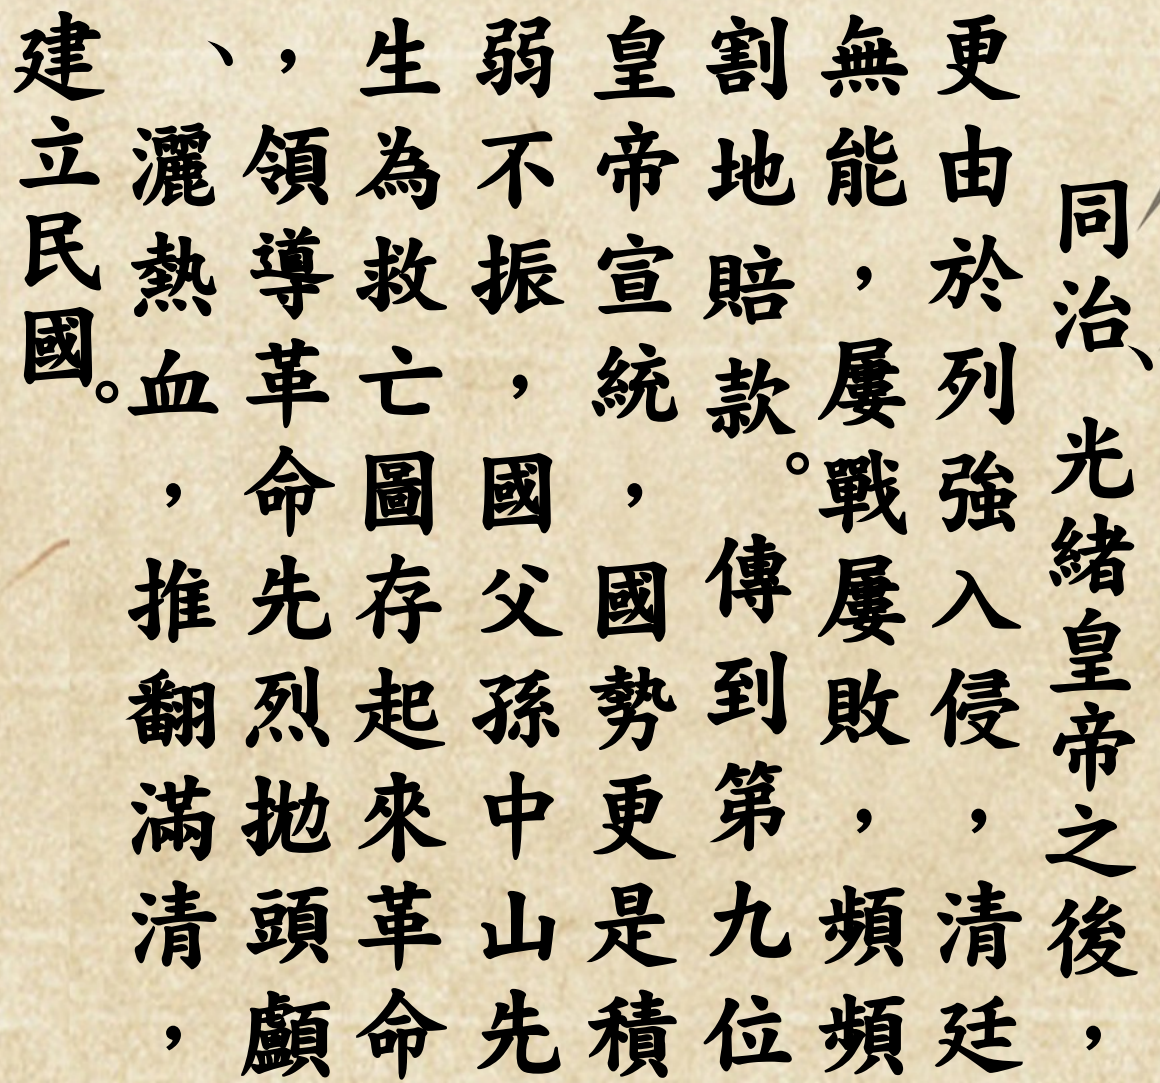 同治、光緒皇帝之後，
更由於列強入侵，清廷
無能，屢戰屢敗，頻頻
割地賠款。傳到第九位
皇帝宣統，國勢更是積
弱不振，國父孫中山先
生為救亡圖存起來革命
，領導革命先烈拋頭顱
、灑熱血，推翻滿清，
建立民國。